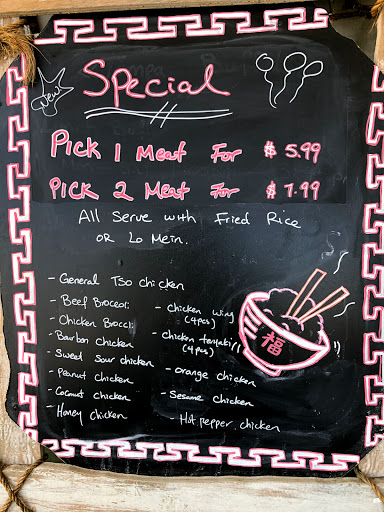 New!
Special
Pick 1 Meat For $5.99
Pick 2 Meat For $7.99
All Serve with Fried Rice
OR Lo Mein.
- General Tso chicken
- Beef Broccoli
- Chicken Broccli
- Bourbon chicken
- Sweet Sour chicken
- Peanut chicken
- Coconut chicken
- Honey chicken
- chicken wing
(4pcs)
- chicken teriyaki
(4pcs)
- orange chicken
- Sesame chicken
- Hot pepper chicken
福